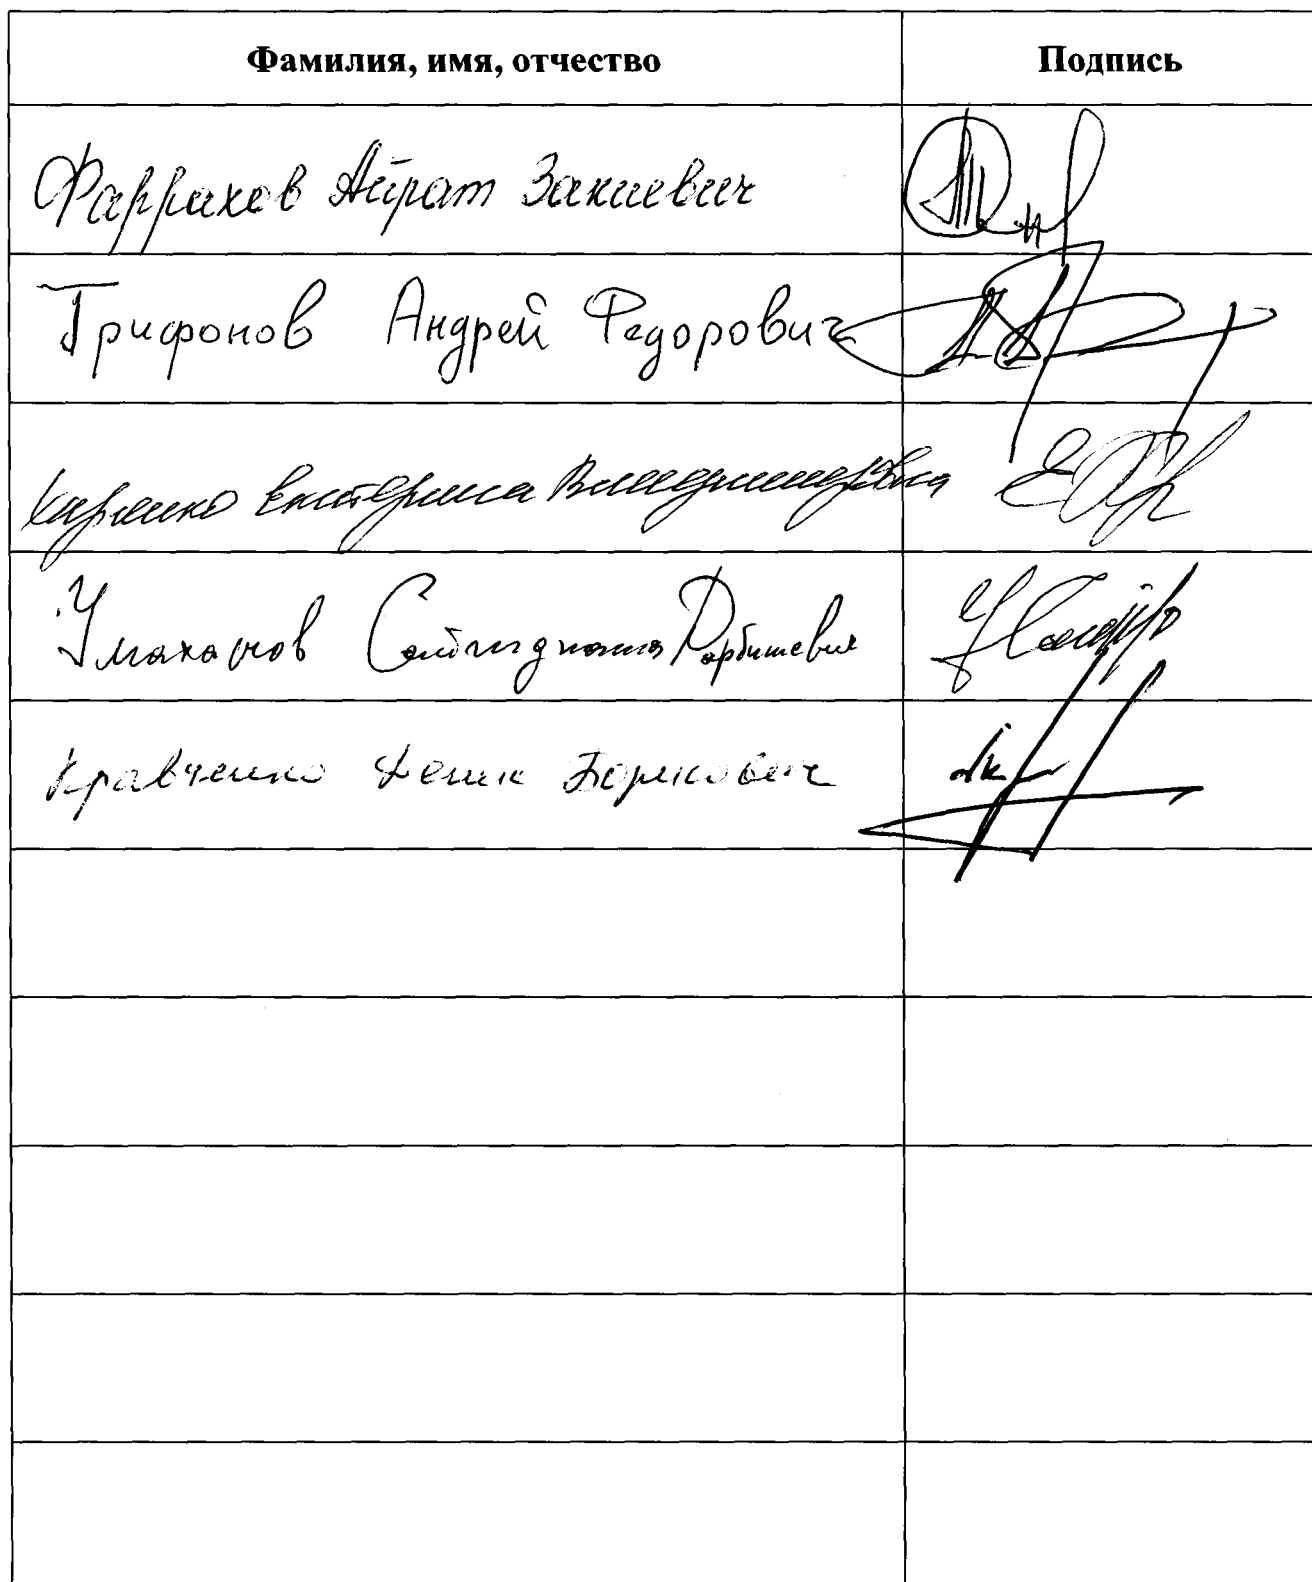 Фамилия, имя, отчество Подпись
Фаррахов Айрат Закиевич
Трифонов Андрей Федорович
Харченко Екатерина Владимировна
Умаханов Дарбишевич
Кравченко Денис Борисович